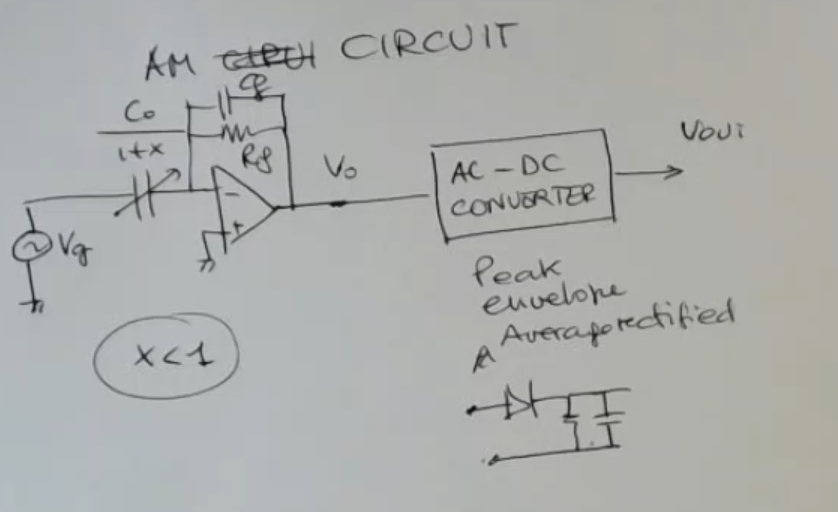 AM CIRCUIT
Cf
C₀
1+x
Rf
V₀
Vg
-
+
AC-DC
CONVERTER
Vout
x<1
Peak
envelope
Average rectified